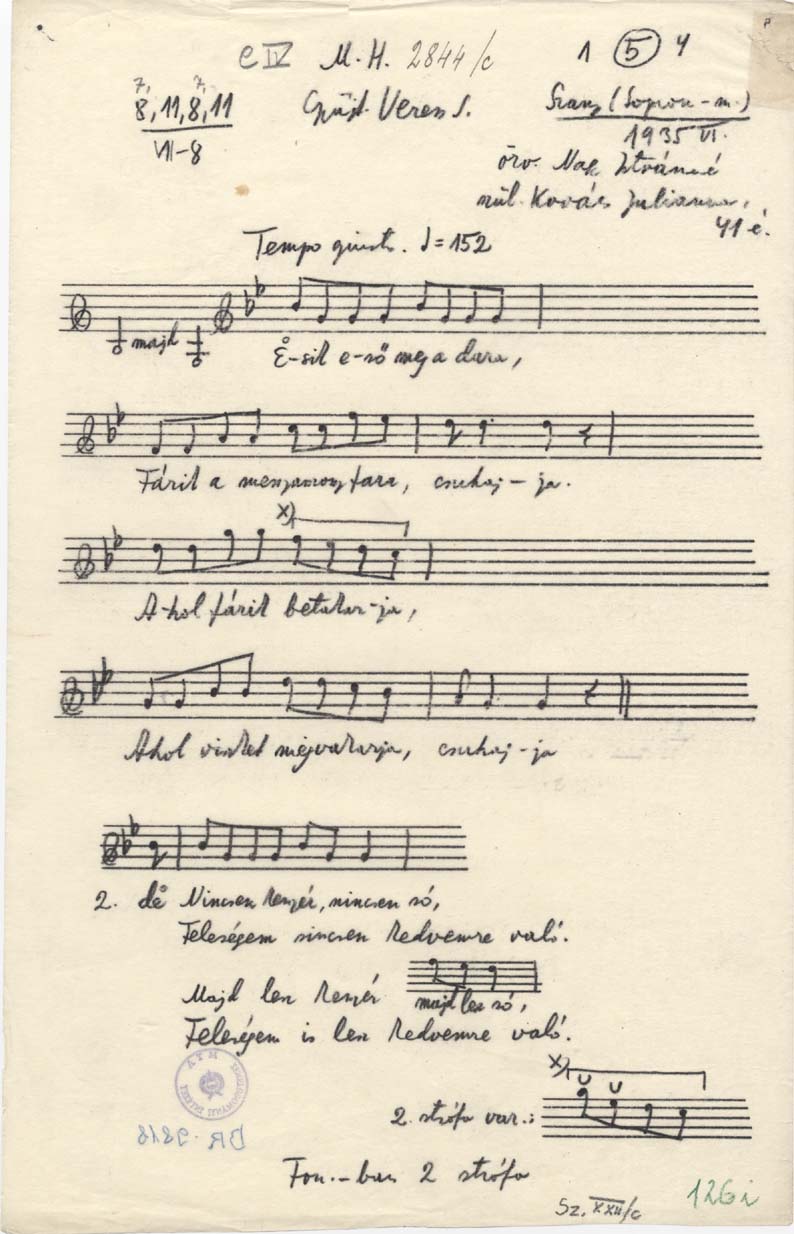 e IV M. H. 2844/c 1 5 4
7, 7,
8, 11, 8, 11 Gyűjt. Veress S. Szany (Sopron-m.)
VII-8 1935 VI.
özv. Nagy Istvánné
szül. Kovács Julianna,
41 é.
Tempo giusto. ♩=152
majd
Å-sik e-ső meg a dara,
Fázik a menyasszony fara, csuhaj-ja.
x)
A-hol fázik betakar-ja,
Ahol viszket megvakarja, csuhaj-ja
2. de Nincsen kenyér, nincsen só,
Feleségem sincsen kedvemre való.
Majd lesz kenyér majd lesz só,
Feleségem is lesz kedvemre való.
x)
2. strófa var.:
DR. 3818
Fon.-ban 2 strófa
Sz. XXII/c 126i